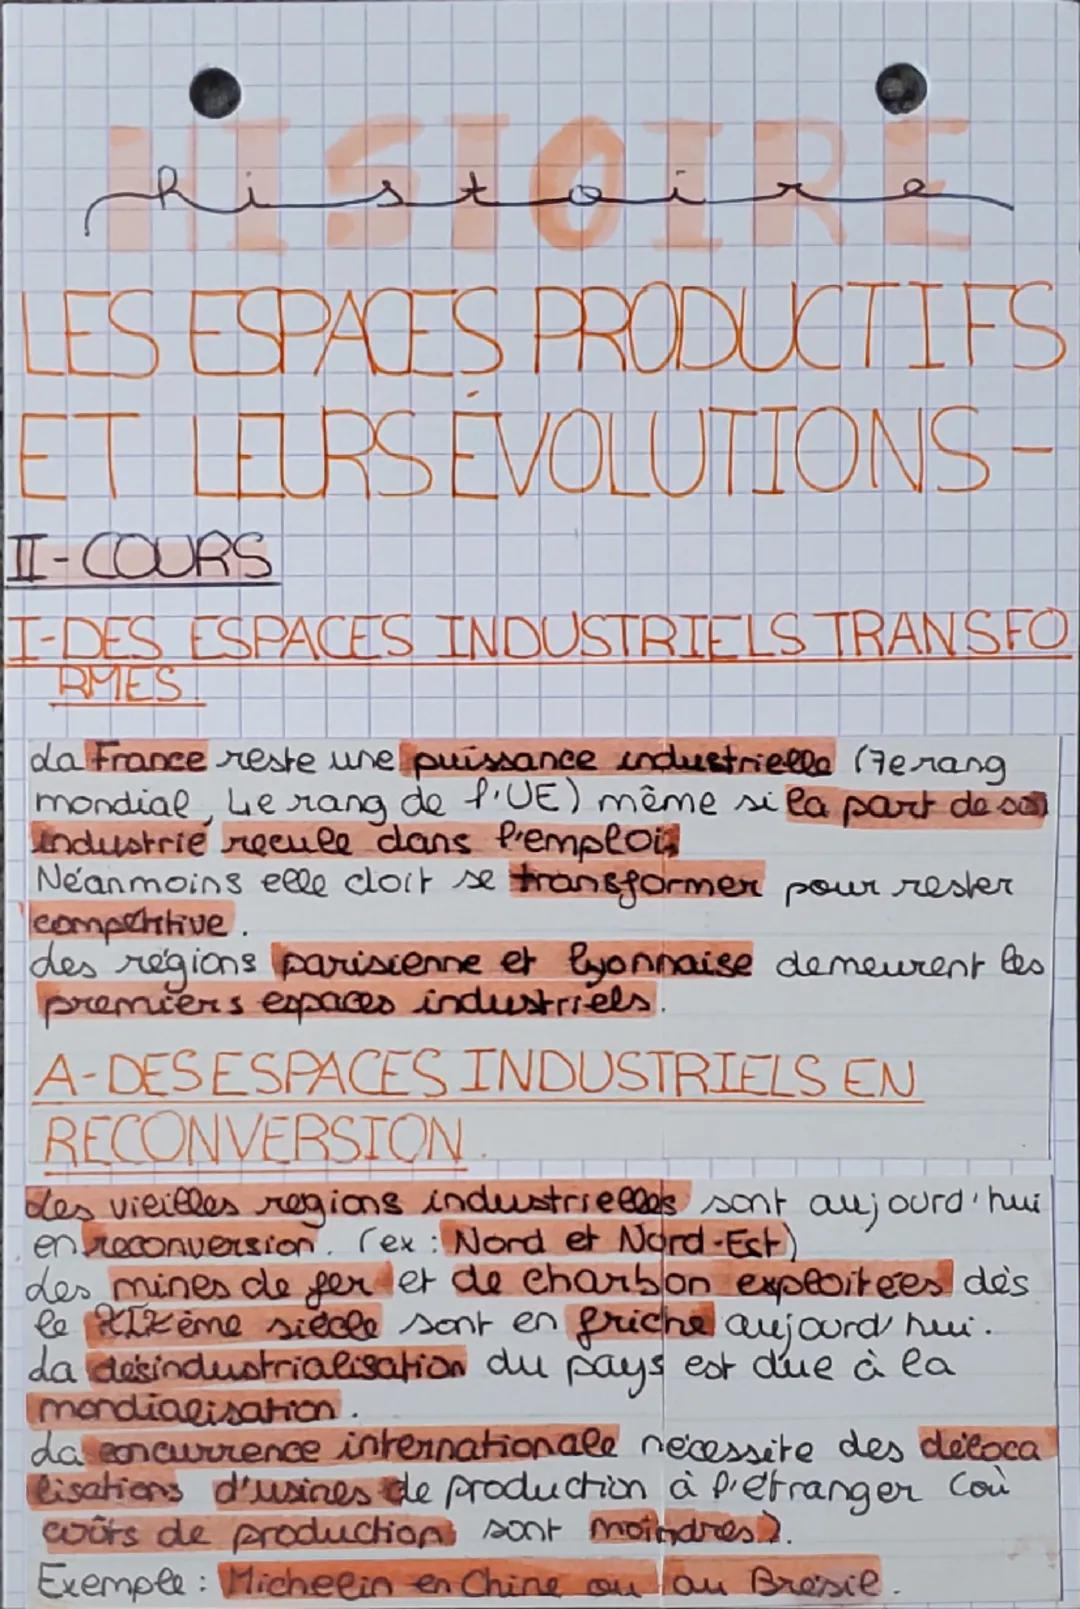 HISTOIRE
histoire
LES ESPACES PRODUCTIFS
ET LEURS ÉVOLUTIONS -
II - COURS
I - DES ESPACES INDUSTRIELS TRANSFO
RMES.
La France reste une puissance industrielle (7e rang
mondial, 4e rang de l'UE) même si la part de son
industrie recule dans l'emploi;
Néanmoins elle doit se transformer pour rester
compétitive.
Les régions parisienne et lyonnaise demeurent les
premiers espaces industriels.
A - DES ESPACES INDUSTRIELS EN
RECONVERSION.
Les vieilles regions industrielles sont aujourd'hui
en reconversion. (ex : Nord et Nord-Est)
Les mines de fer et de charbon exploitées dès
le XIXème siècle sont en friche aujourd'hui.
La désindustrialisation du pays est due à la
mondialisation.
La concurrence internationale nécessite des déloca
lisations d'usines de production à l'étranger (où
coûts de production sont moindres).
Exemple : Michelin en Chine ou au Brésil.